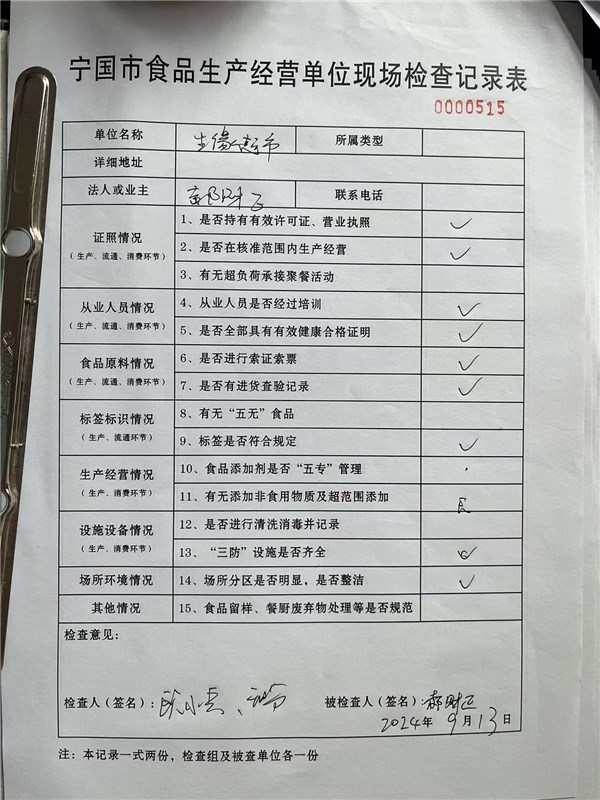 宁国市食品生产经营单位现场检查记录表
0000515
单位名称 所属类型
详细地址
法人或业主 联系电话
证照情况
(生产、流通、消费环节)
1、是否持有有效许可证、营业执照 ✓
2、是否在核准范围内生产经营 ✓
3、有无超负荷承接聚餐活动
从业人员情况
(生产、流通、消费环节)
4、从业人员是否经过培训 ✓
5、是否全部具有有效健康合格证明 ✓
食品原料情况
(生产、流通、消费环节)
6、是否进行索证索票 ✓
7、是否有进货查验记录 ✓
标签标识情况
(生产、流通环节)
8、有无“五无”食品
9、标签是否符合规定 ✓
生产经营情况
(生产、消费环节)
10、食品添加剂是否“五专”管理
11、有无添加非食用物质及超范围添加
设施设备情况
(生产、消费环节)
12、是否进行清洗消毒并记录
13、“三防”设施是否齐全 ✓
场所环境情况 14、场所分区是否明显，是否整洁 ✓
其他情况 15、食品留样、餐厨废弃物处理等是否规范
检查意见：
检查人(签名)： 被检查人(签名)：
2024年 9月13日
注：本记录一式两份，检查组及被查单位各一份